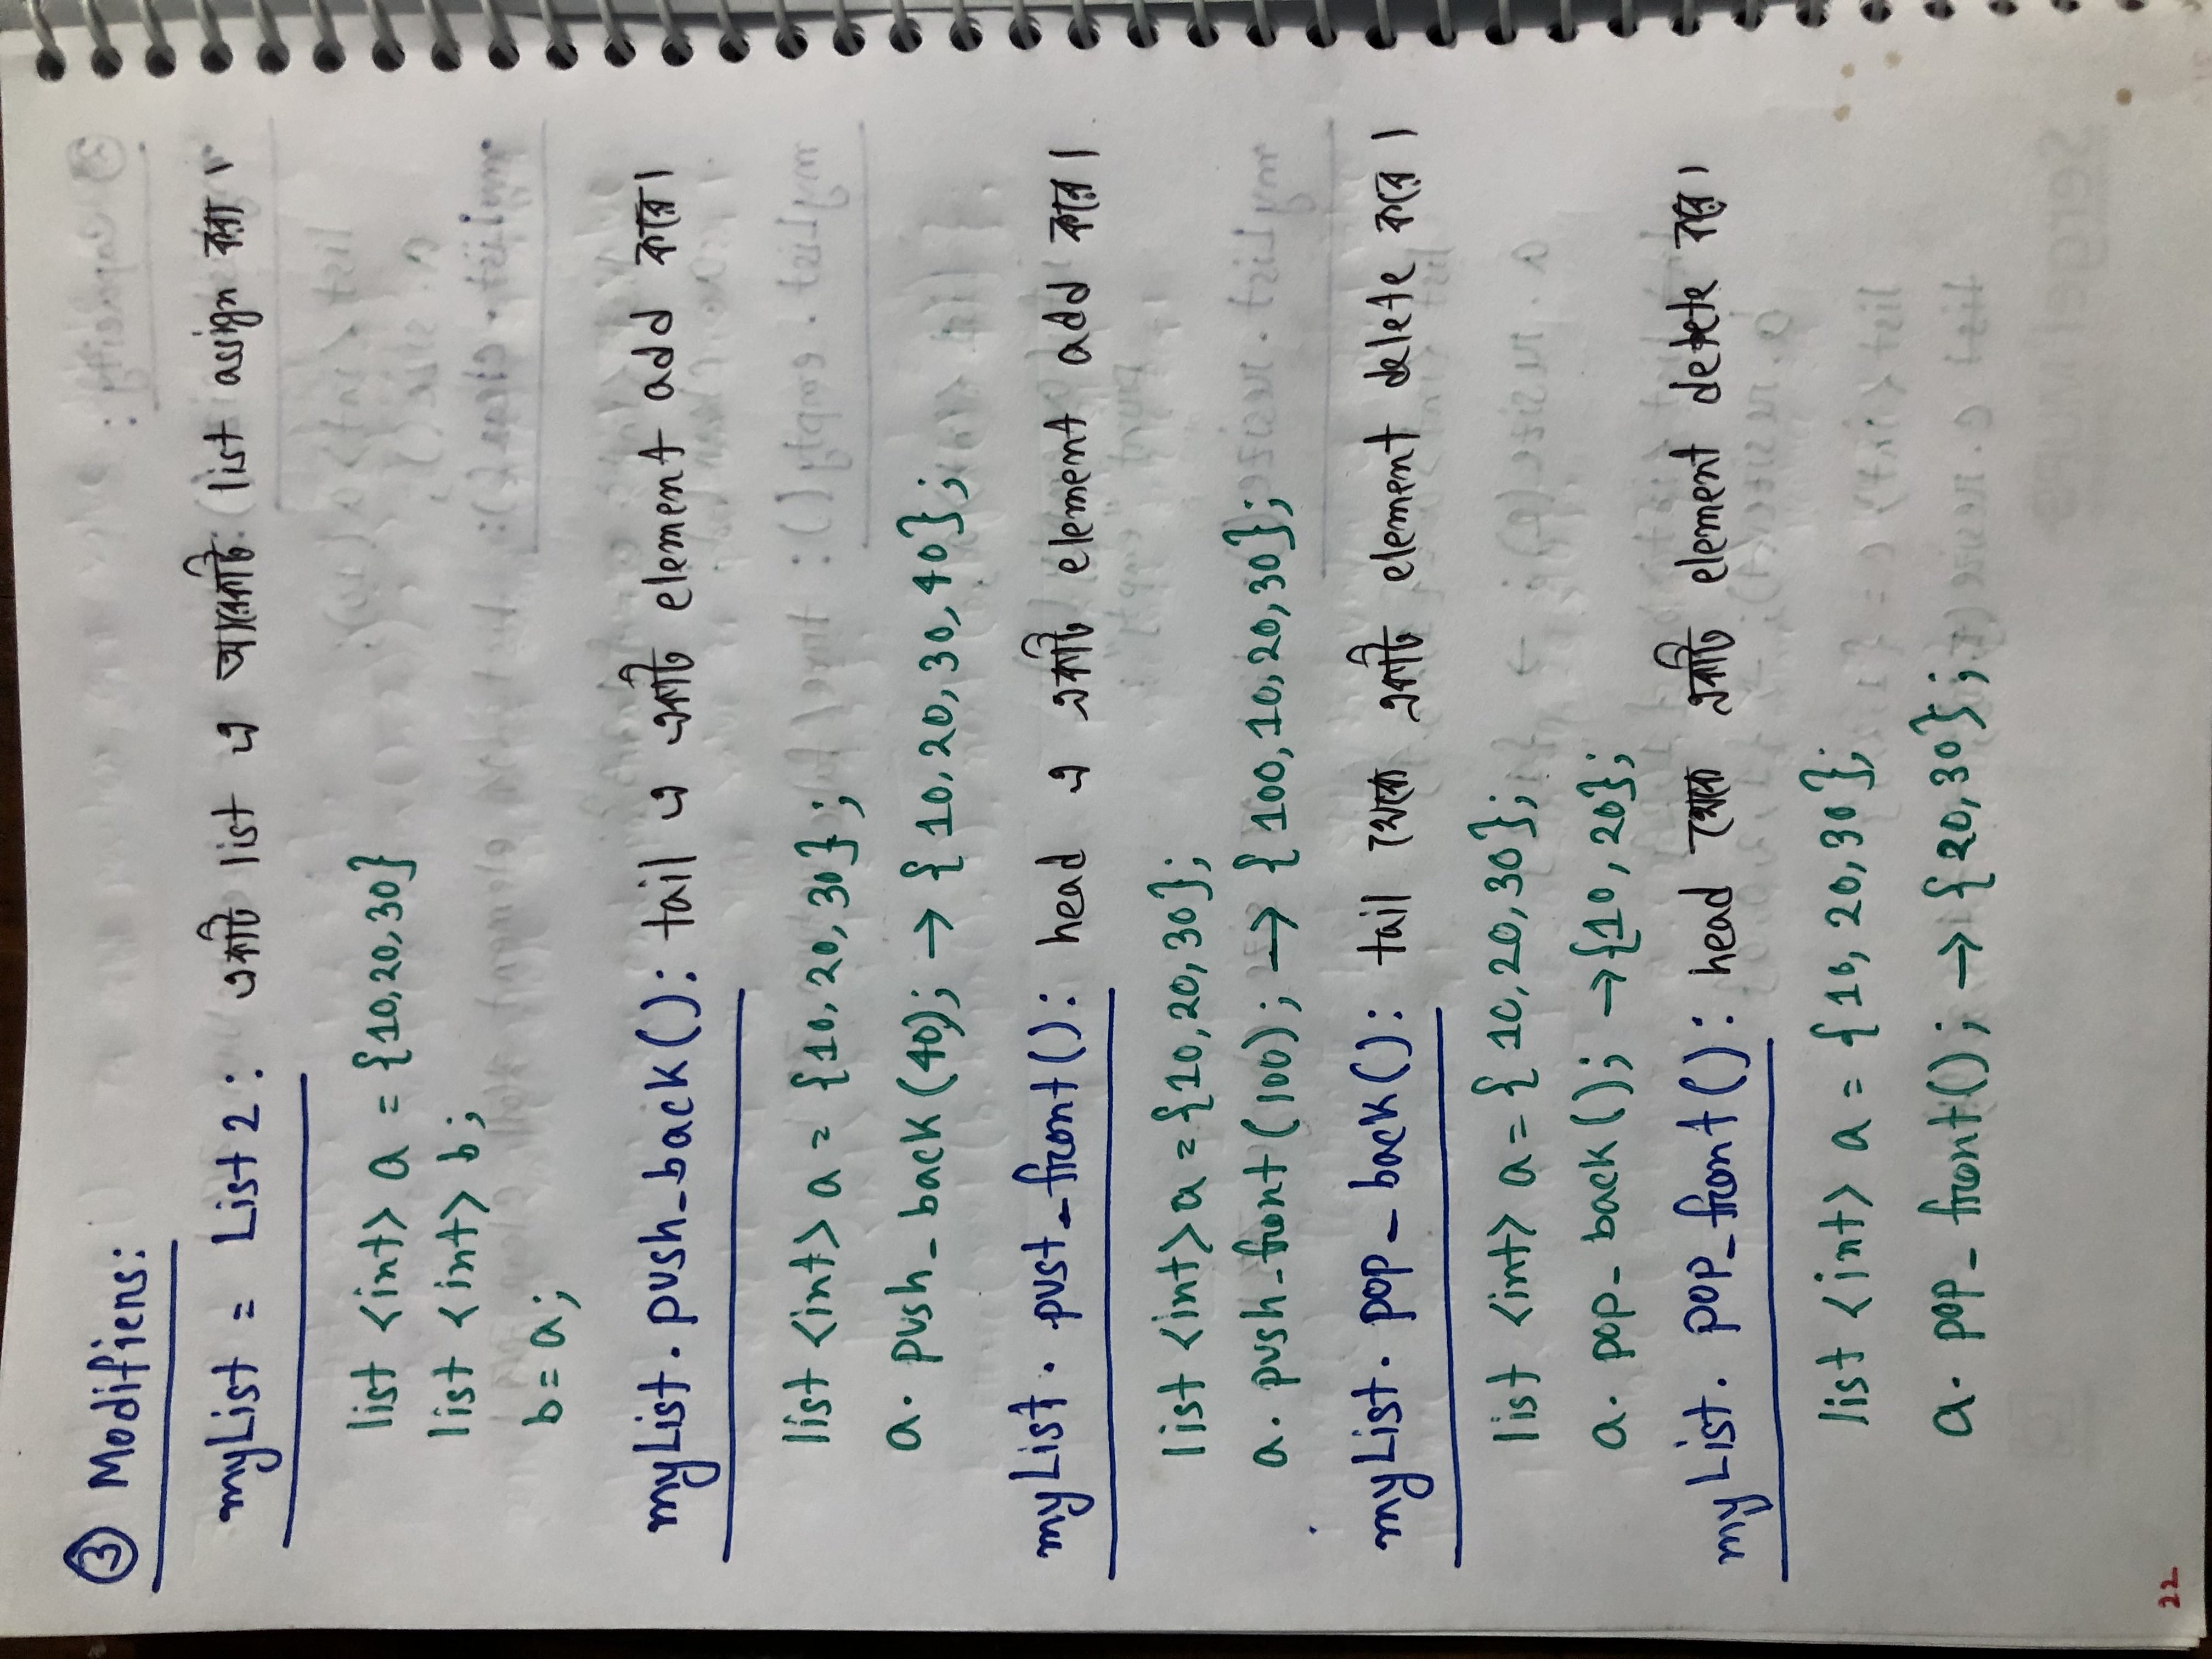 ③ Modifiers:
myList = List 2: একটি list এ আরেকটি list assign করা।
list <int> a = {10,20,30}
list <int> b;
b = a;
myList. push_back(): tail এ একটি element add করে।
list <int> a = {10, 20, 30};
a. push_back (40); → { 10, 20, 30, 40};
myList. pust_front(): head এ একটি element add করে।
list <int> a = {10,20,30};
a. push_front (100); → { 100, 10, 20, 30};
myList. pop_back(): tail থেকে একটি element delete করে।
list <int> a = { 10, 20, 30};
a. pop_back (); → {10, 20};
myList. pop_front(): head থেকে একটি element delete করে।
list <int> a = {10, 20, 30};
a. pop_front(); → {20,30};
22